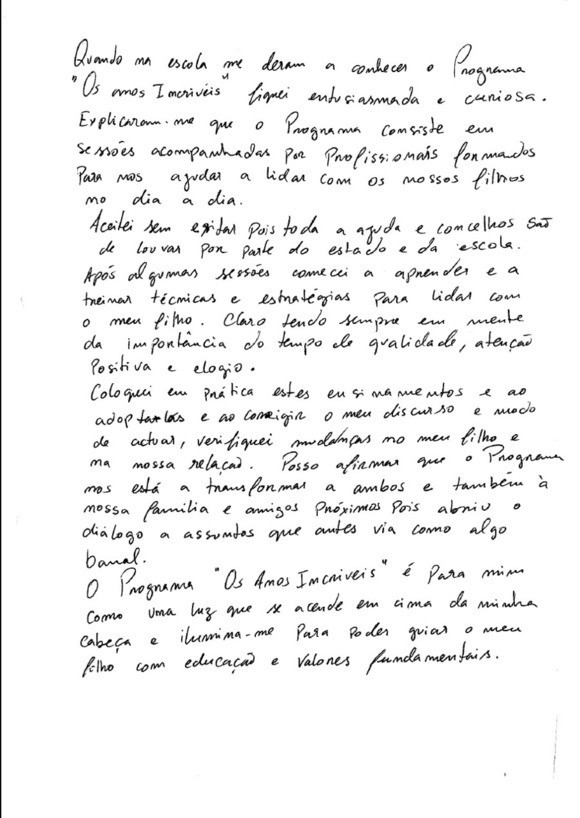 Quando na escola me deram a conhecer o Programa
"Os anos Incrivéis" fiquei entusiasmada e curiosa.
Explicaram-me que o Programa consiste em
sessões acompanhadas por Profissionais formados
Para nos ajudar a lidar com os nossos filhos
no dia a dia.
Aceitei sem exitar pois toda a ajuda e concelhos são
de louvar por parte do estado e da escola.
Após algumas sessões comecei a aprender e a
treinar técnicas e estratégias para lidar com
o meu filho. Claro tendo sempre em mente
da importância do tempo de qualidade, atenção
Positiva e elogio.
Coloquei em prática estes ensinamentos e ao
adoptar-los e ao corrigir o meu discurso e modo
de actuar, verifiquei mudanças no meu filho e
na nossa relação. Posso afirmar que o Programa
nos está a transformar a ambos e também à
nossa familia e amigos próximos pois abriu o
diálogo a assuntos que antes via como algo
banal.
O Programa "Os Anos Incriveis" é para mim
como uma luz que se acende em cima da minha
cabeça e ilumina-me para poder guiar o meu
filho com educação e valores fundamentais.